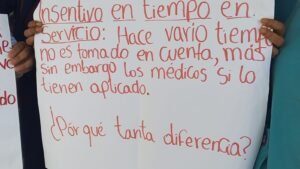 Insentivo en tiempo en
Servicio: Hace vario tiempo
no es tomado en cuenta, más
sin embargo los médicos si lo
tienen aplicado.
¿Por qué tanta diferencia?